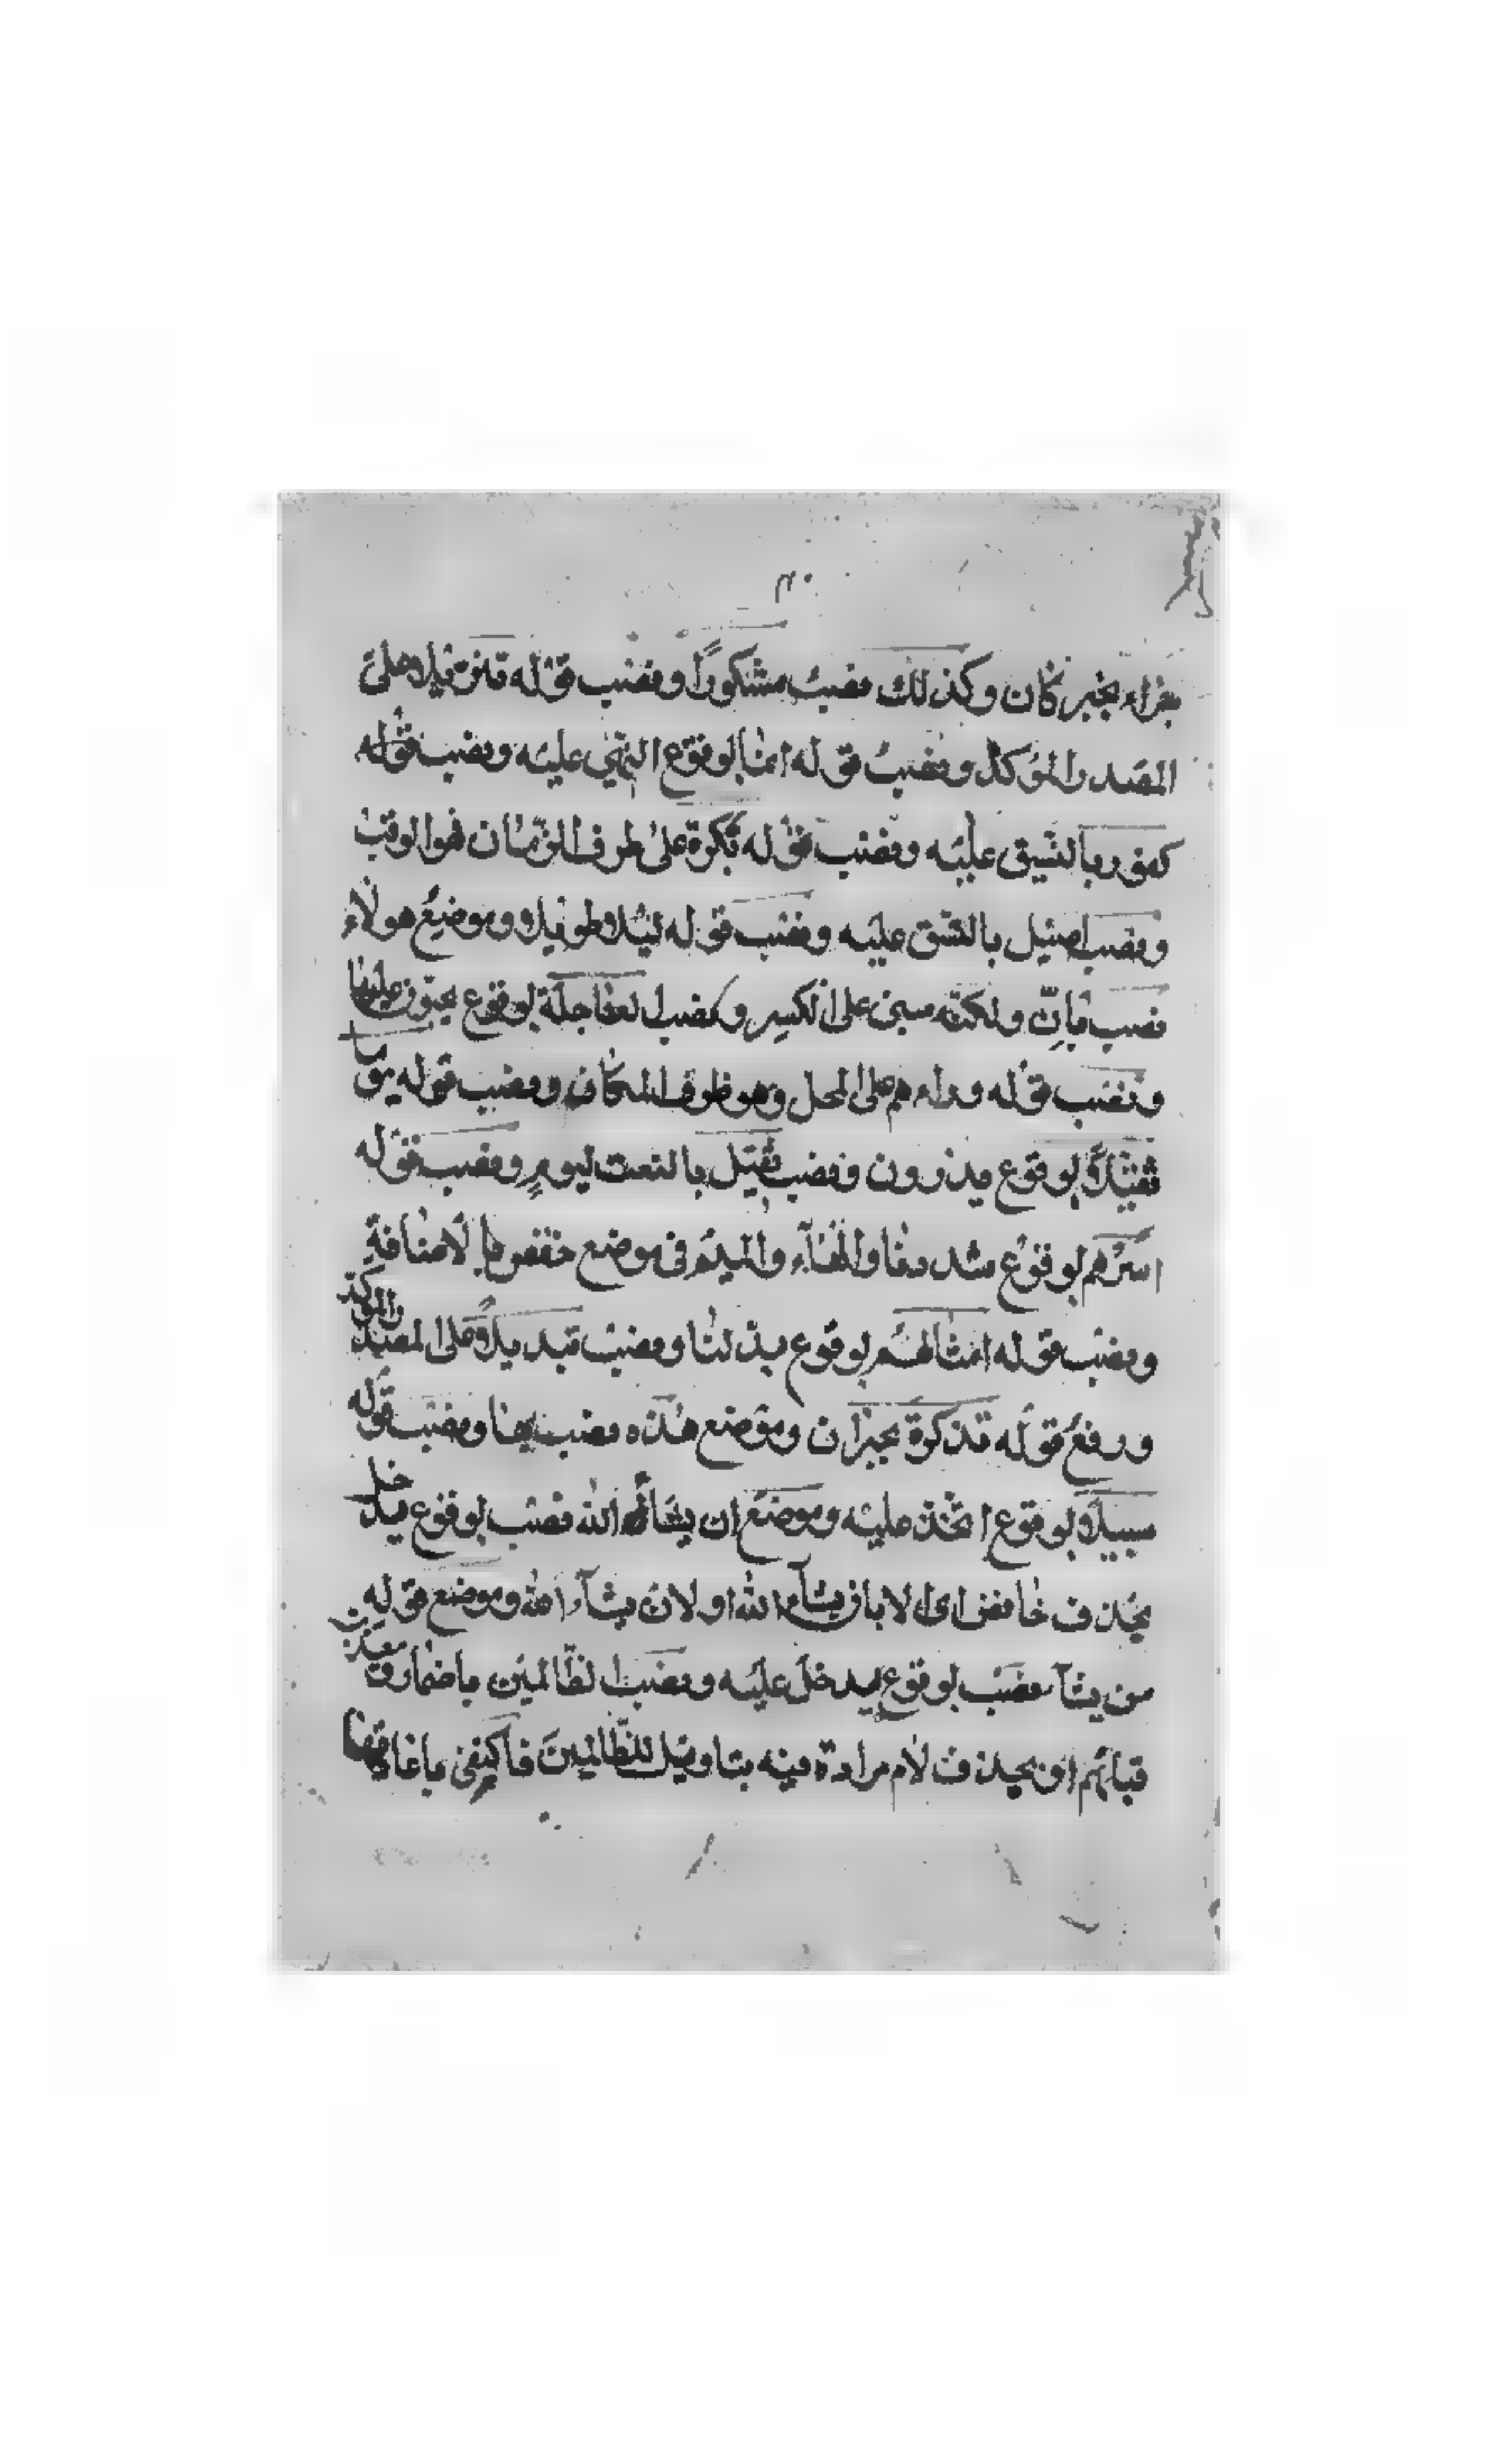 جزاء بخبر كان وكذلك نصب مشكوراً ونصب قوله تنزيلا على
المصدر المؤكد ونصب قوله اثما لوقوع النهي عليه ونصب قوله
كفورا بالنسق عليه ونصب قوله بكرة على ظرف الزمان هو الوقت
ونصب اصيل بالنسق عليه ونصب قوله ليلا طويلا وموضع هولاء
نصب بان ولكنه مبنى على الكسر ونصب العاجلة لوقوع يحبون عليها
ونصب قوله وراءهم على المحل وهو ظرف المكان ونصب قوله يوما
ثقيلا لوقوع يذرون ونصب ثقيل بالنعت ليوم ونصب قوله
اسرهم لوقوع شددنا والهاء والميم فى موضع خفض بالاضافة
ونصب قوله امثالهم لوقوع بدلنا ونصب تبديلا على المصدر المؤكد
ورفع قوله تذكرة بخبر ان وموضع هذه نصب بها ونصب قوله
سبيلا لوقوع اتخذ عليه وموضع ان يشاء الله نصب لوقوع يدخل
بحذف خافض اى الا بان يشاء الله او لان يشاء الله وموضع قوله
من يشآ نصب لوقوع يدخل عليه ونصب الظالمين باضمار
بحذف لام مرادة فيه بتاويل للظالمين فاكتفى